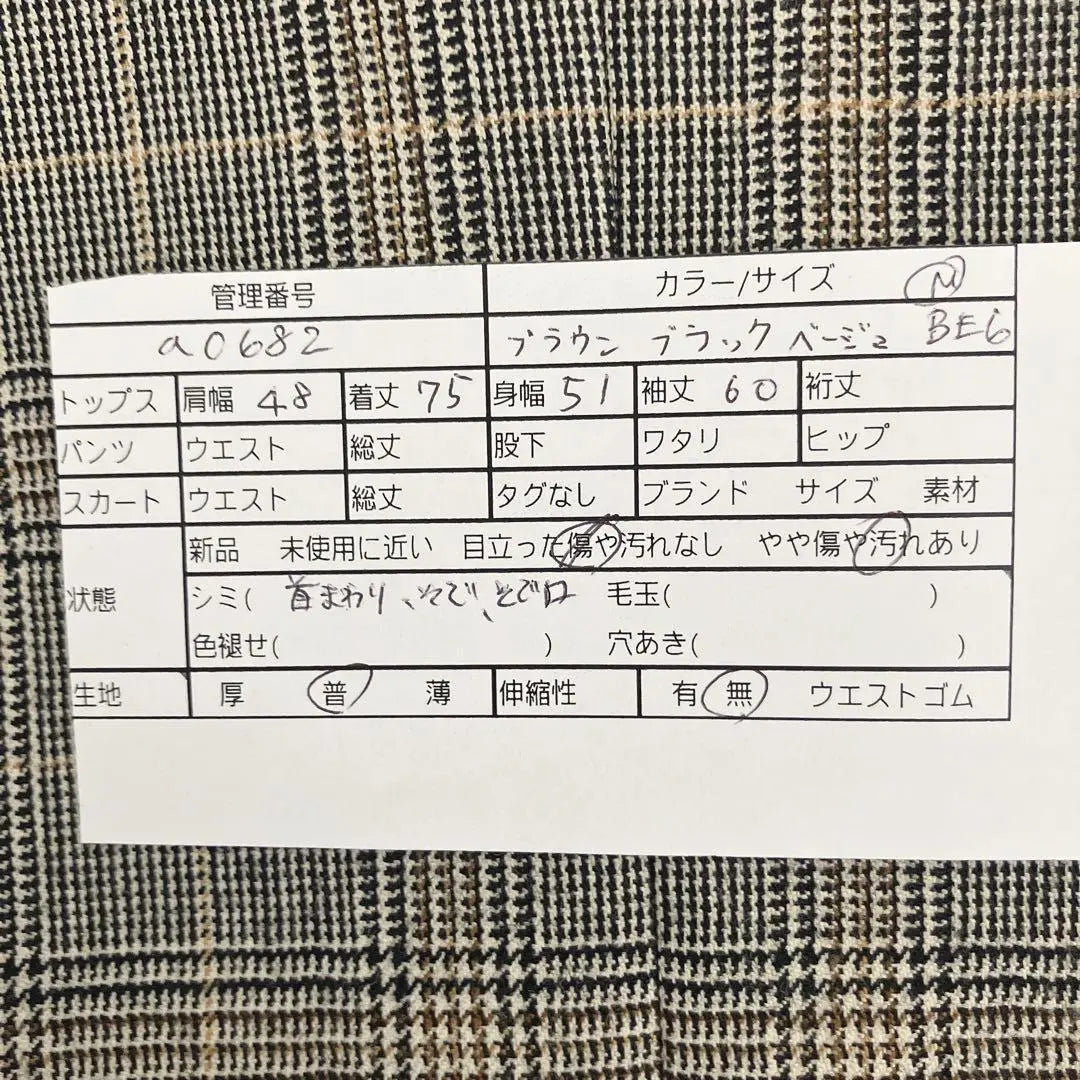 管理番号 カラー/サイズ M
a0682 ブラウン ブラック ベージュ BE6
トップス 肩幅 48 着丈 75 身幅 51 袖丈 60 裄丈
パンツ ウエスト 総丈 股下 ワタリ ヒップ
スカート ウエスト 総丈 タグなし ブランド サイズ 素材
新品 未使用に近い 目立った傷や汚れなし やや傷や汚れあり
状態 シミ( 首まわり、そで、そで口 毛玉( )
色褪せ( ) 穴あき( )
生地 厚 普 薄 伸縮性 有 無 ウエストゴム